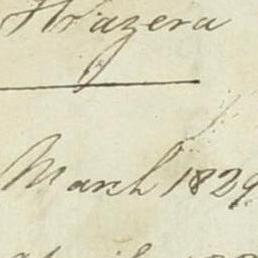 Frazera
March 1829